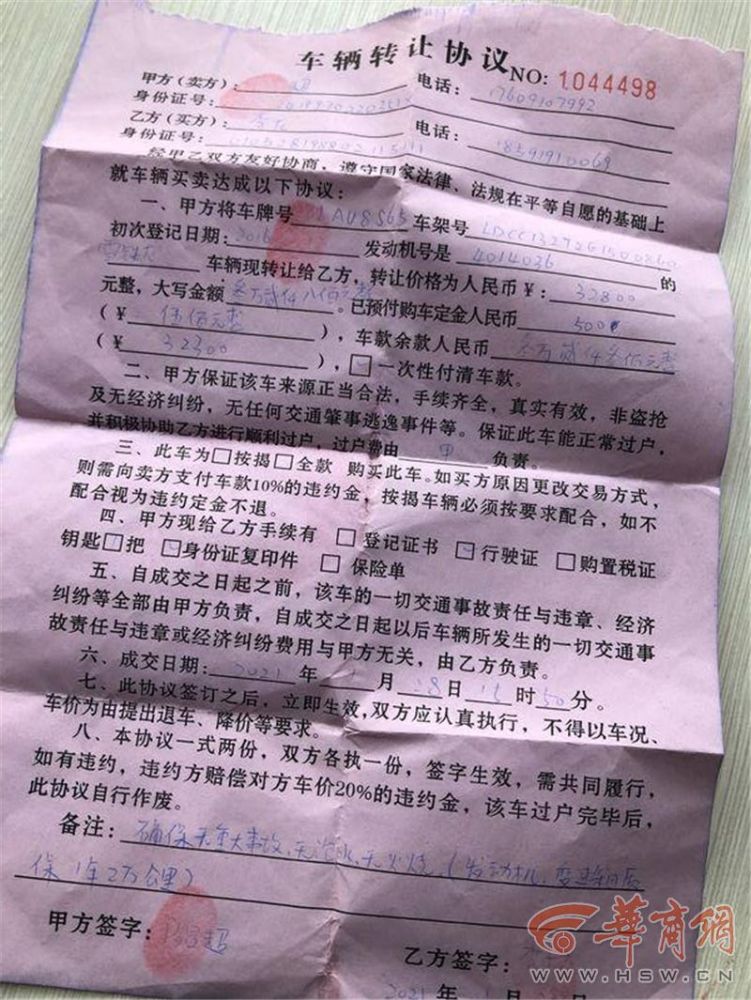 车辆转让协议NO: 1044498
甲方(卖方): 电话: 17609107992
身份证号:
乙方(买方): 电话: 18591910069
身份证号:
经甲乙双方友好协商,遵守国家法律、法规在平等自愿的基础上
就车辆买卖达成以下协议:
一、甲方将车牌号 AU8S65 车架号
初次登记日期: 2016 发动机号是 4014036 的
车辆现转让给乙方,转让价格为人民币¥: 32800
元整,大写金额 叁万贰仟八佰元整 .已预付购车定金人民币 500
(¥ 伍佰元整 ),车款余款人民币 叁万贰仟叁佰元整
(¥ 32300 ),☑一次性付清车款。
二、甲方保证该车来源正当合法,手续齐全,真实有效,非盗抢
及无经济纠纷,无任何交通肇事逃逸事件等。保证此车能正常过户,
并积极协助乙方进行顺利过户,过户费由 甲 负责。
三、此车为□按揭□全款 购买此车。如买方原因更改交易方式,
则需向卖方支付车款10%的违约金,按揭车辆必须按要求配合,如不
配合视为违约定金不退。
四、甲方现给乙方手续有 □登记证书 ☑行驶证 □购置税证
钥匙□把 ☑身份证复印件 □保险单
五、自成交之日起之前,该车的一切交通事故责任与违章、经济
纠纷等全部由甲方负责,自成交之日起以后车辆所发生的一切交通事
故责任与违章或经济纠纷费用与甲方无关,由乙方负责。
六、成交日期: 2021 年 月 18日 15 时 50分。
七、此协议签订之后,立即生效,双方应认真执行,不得以车况、
车价为由提出退车、降价等要求。
八、本协议一式两份,双方各执一份,签字生效,需共同履行,
如有违约,违约方赔偿对方车价20%的违约金,该车过户完毕后,
此协议自行作废。
备注: 确保无重大事故,无泡水,无火烧,(发动机,变速箱质
保1年2万公里)
甲方签字: 超
乙方签字:
2021
華商網
WWW.HSW.CN